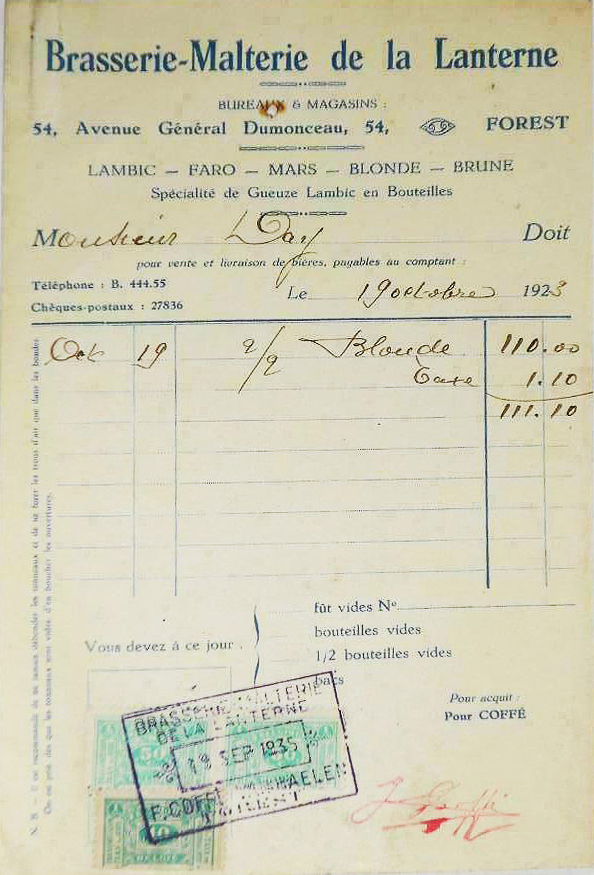 Brasserie-Malterie de la Lanterne
BUREAUX & MAGASINS :
54, Avenue Général Dumonceau, 54, FOREST
LAMBIC — FARO — MARS — BLONDE — BRUNE
Spécialité de Gueuze Lambic en Bouteilles
Monsieur Day Doit
pour vente et livraison de bières, payables au comptant :
Téléphone : B. 444.55
Chèques-postaux : 27836
Le 19 octobre 1923
Oct 19 2/2 Blonde 110.00
Taxe 1.10
111.10
fût vides No
Vous devez à ce jour :
bouteilles vides
1/2 bouteilles vides
bacs
Pour acquit :
Pour COFFÉ
BRASSERIE MALTERIE
DE LA LANTERNE
19 SEP 1935
F. COFFÉ
50
10
N. B. — Il est recommandé de ne jamais débonder les tonneaux et de ne forer les trous d'air que dans les bondes.
On est prié dès que les tonneaux sont vides d'en boucher les ouvertures.